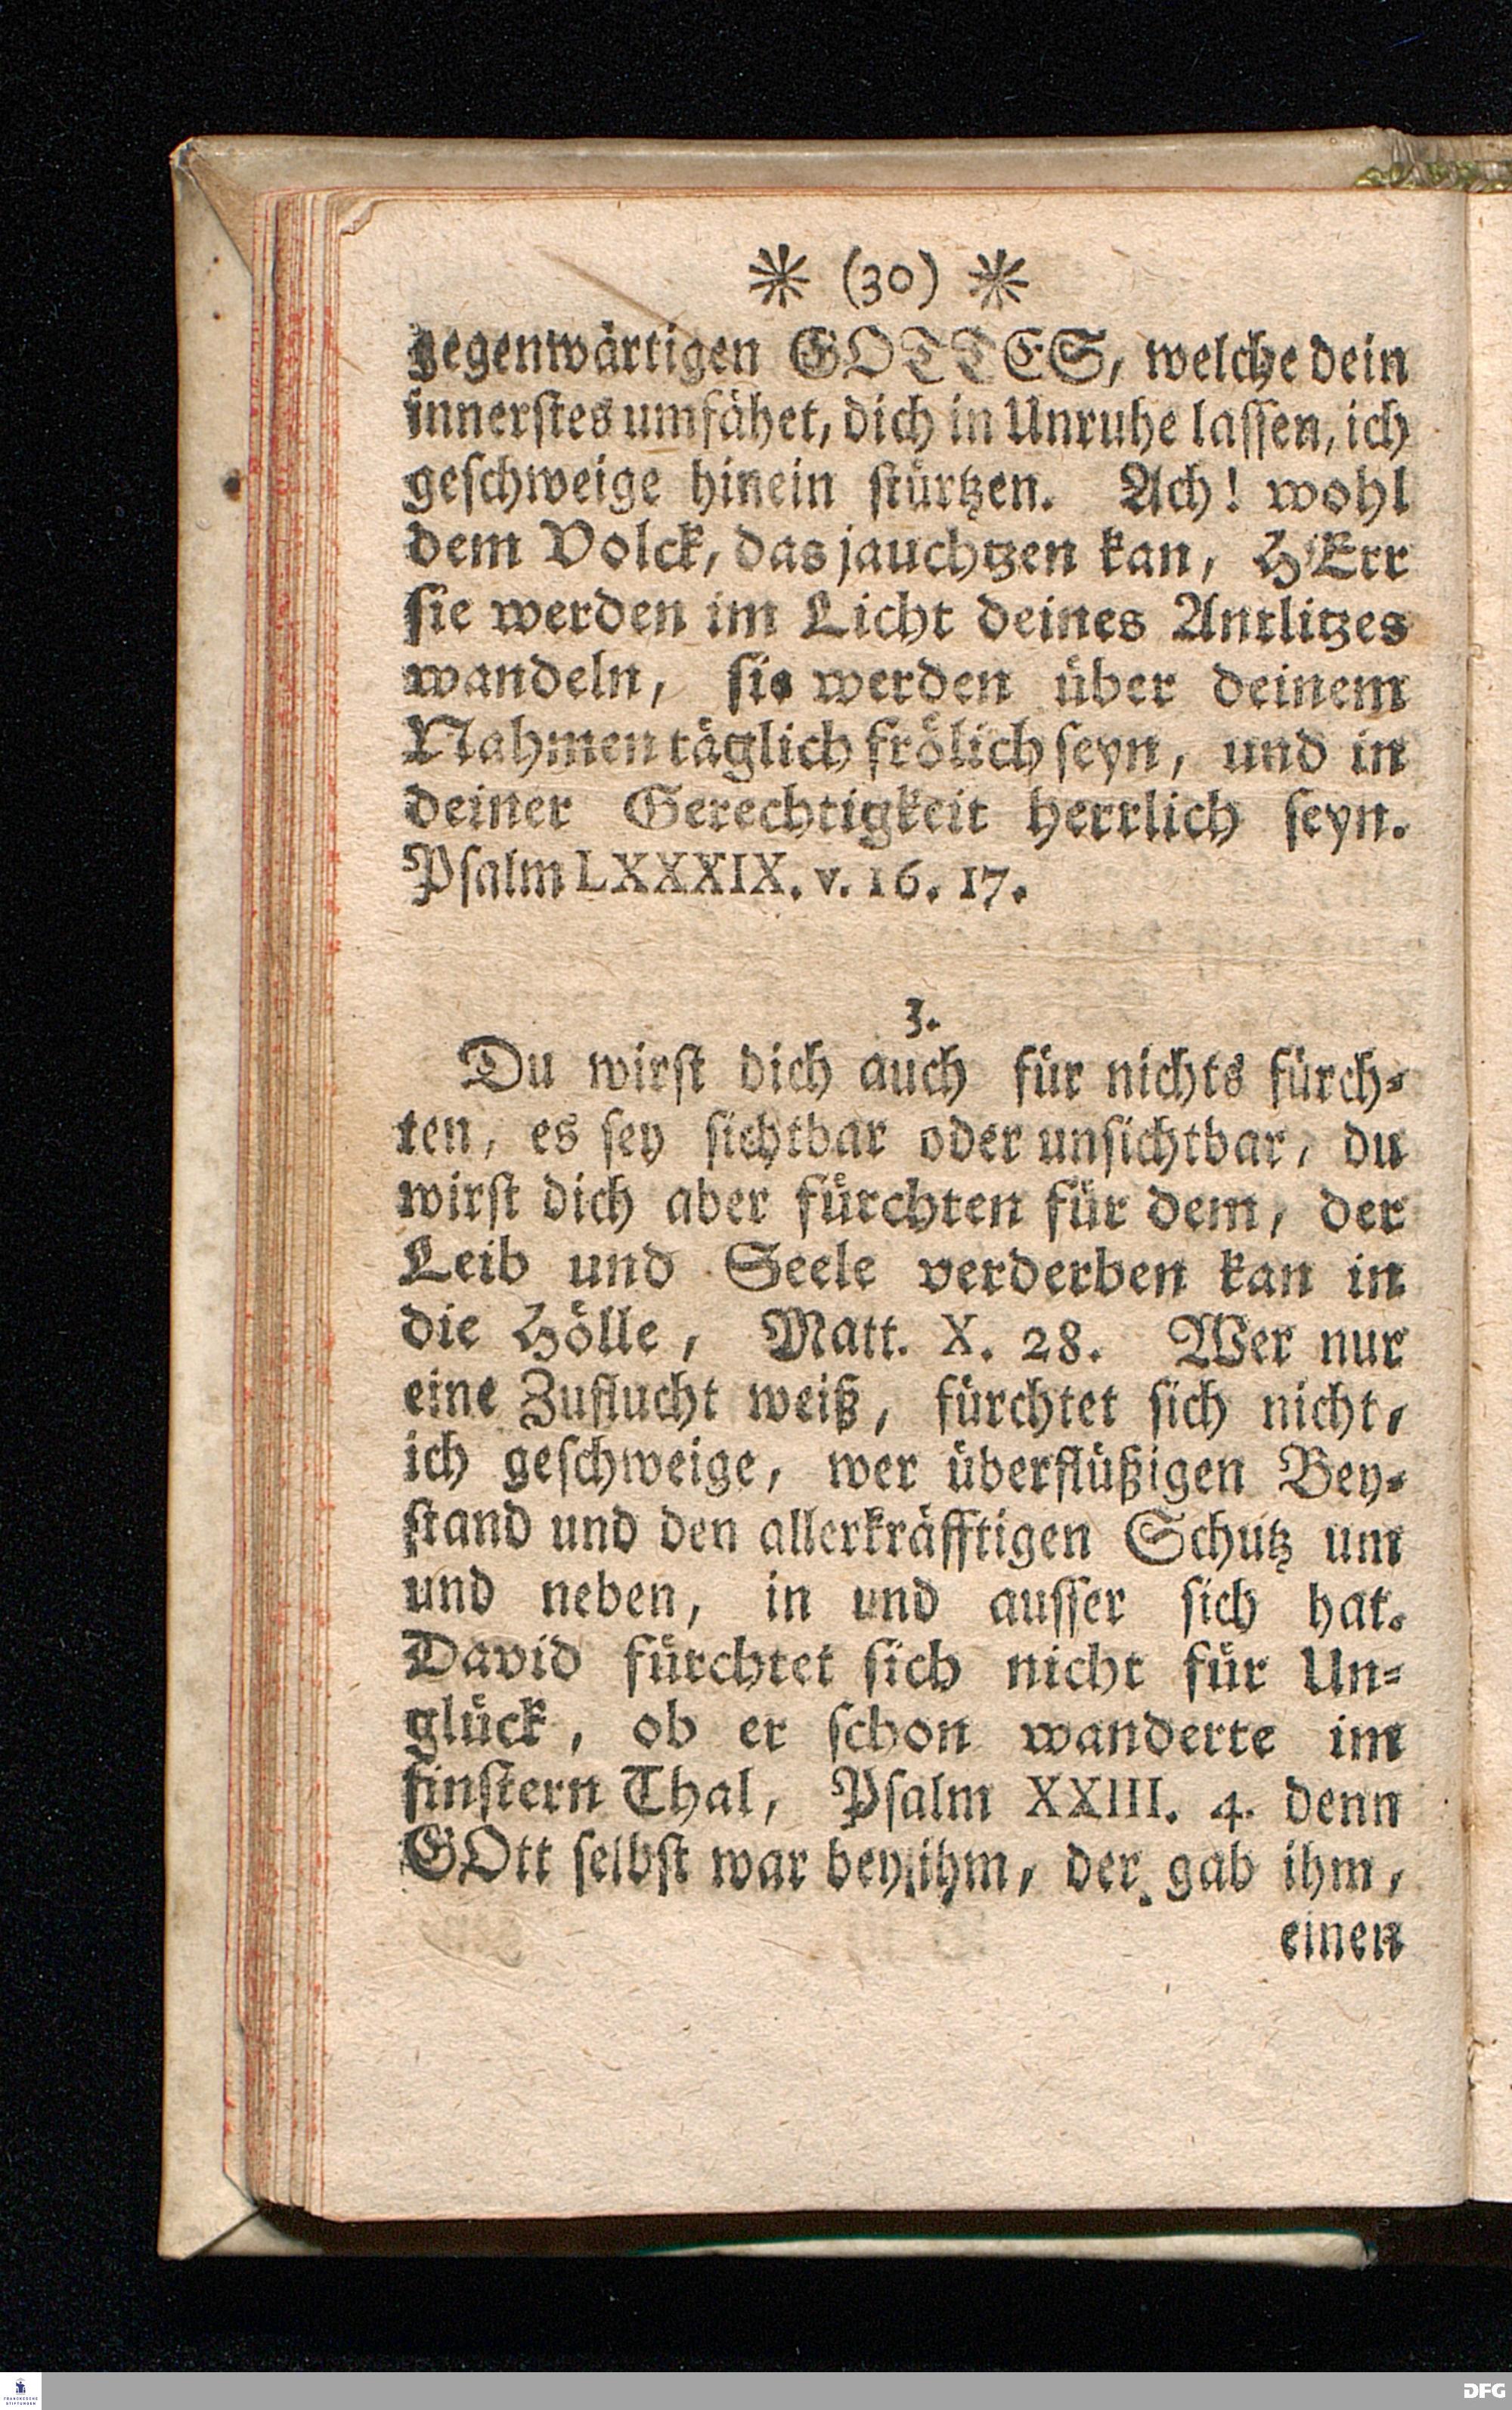 * (30) *
gegenwärtigen GOTTES, welche dein
innerstes umfähet, dich in Unruhe lassen, ich
geschweige hinein stürtzen. Ach! wohl
dem Volck, das jauchtzen kan, HErr
sie werden im Licht deines Antlitzes
wandeln, sie werden über deinem
Nahmen täglich frölich seyn, und in
deiner Gerechtigkeit herrlich seyn.
Psalm LXXXIX. v. 16. 17.
3.
Du wirst dich auch für nichts fürch-
ten, es sey sichtbar oder unsichtbar, du
wirst dich aber fürchten für dem, der
Leib und Seele verderben kan in
die Hölle, Matt. X. 28. Wer nur
eine Zuflucht weiß, fürchtet sich nicht,
ich geschweige, wer überflüßigen Bey-
stand und den allerkräfftigen Schutz um
und neben, in und ausser sich hat.
David fürchtet sich nicht für Un-
glück, ob er schon wanderte im
finstern Thal, Psalm XXIII. 4. denn
GOtt selbst war bey ihm, der gab ihm,
einen
FRANCKESCHE STIFTUNGEN
DFG